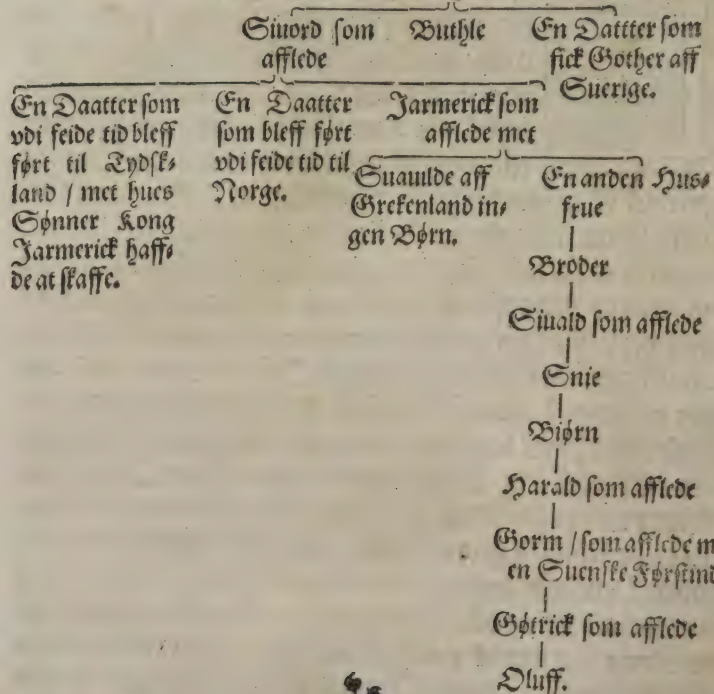 Siuord som
afflede
Buthle
En Dattter som
fick Gother aff
Suerige.
En Daatter som
vdi feide tid bleff
ført til Tydsk⸗
land / met hues
Sønner Kong
Jarmerick haff⸗
de at skaffe.
En Daatter
som bleff ført
vdi feide tid til
Norge.
Jarmerick som
afflede met
Suauilde aff
Grekenland in⸗
gen Børn.
En anden Hus⸗
frue
Broder
Siuald som afflede
Snie
Biørn
Harald som afflede
Gorm / som afflede m
en Suenske Førstind
Gøtrick som afflede
Oluff.